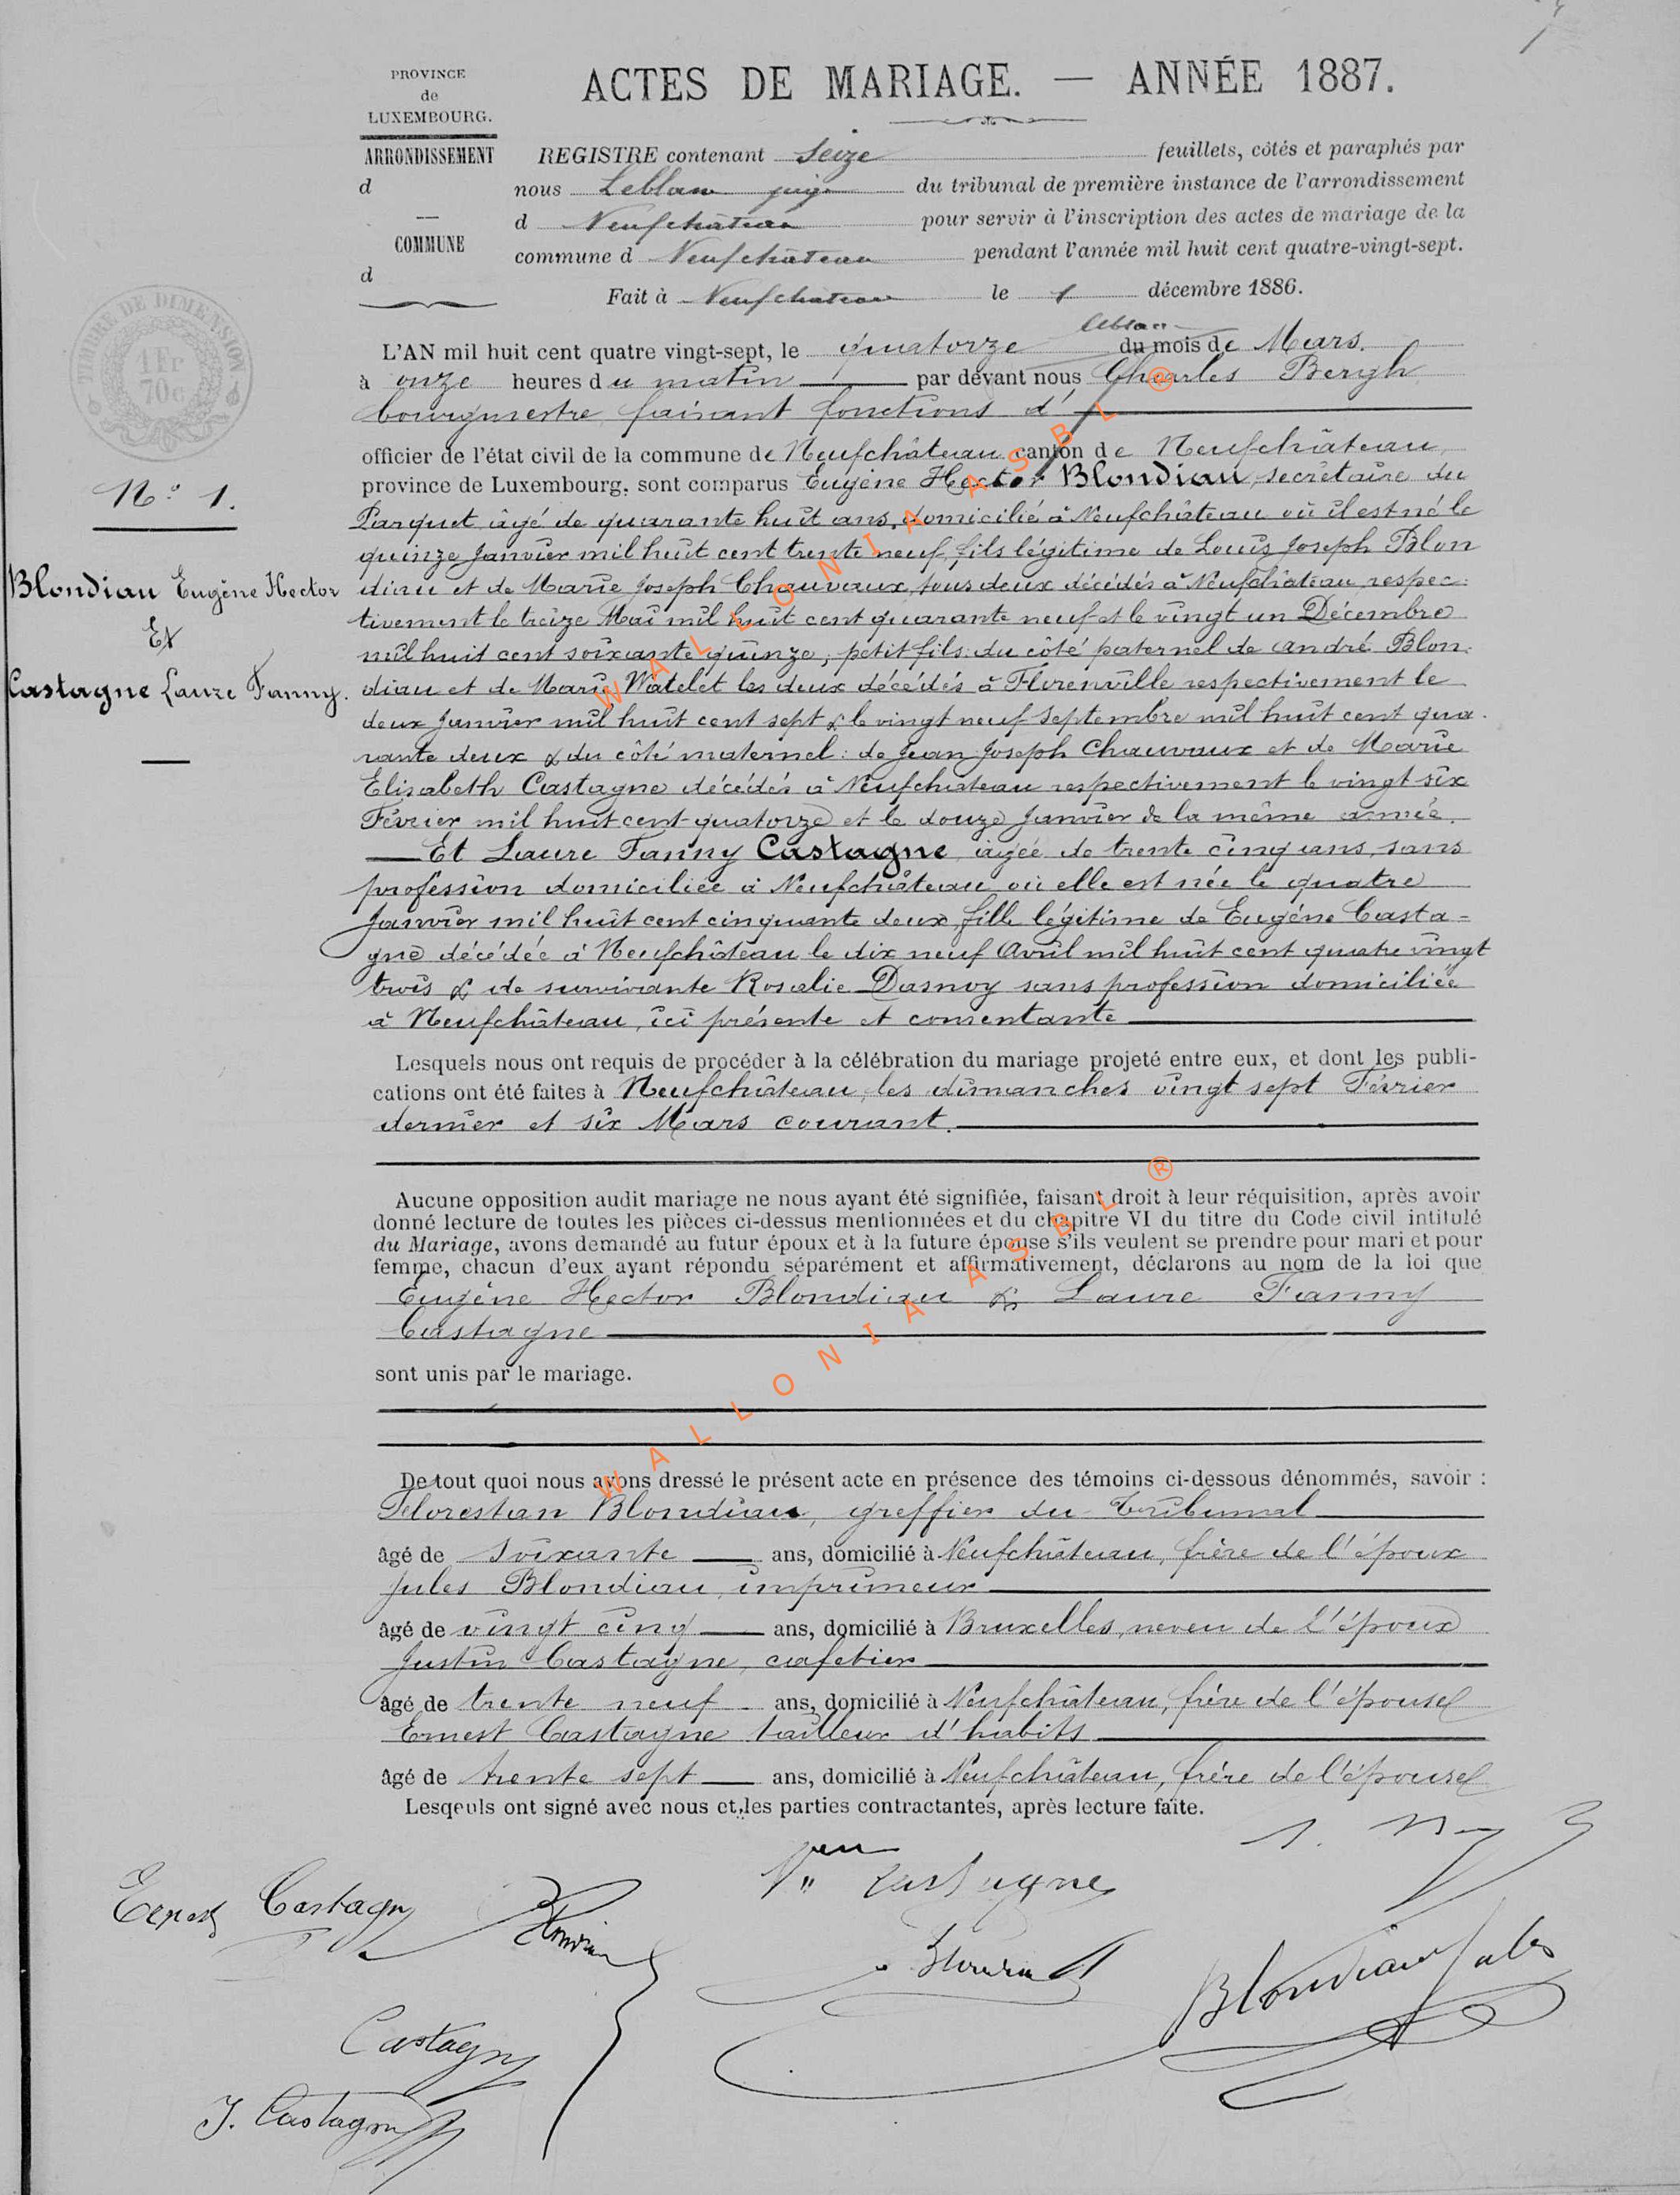 PROVINCE
de
LUXEMBOURG.
ARRONDISSEMENT
d
COMMUNE
d
ACTES DE MARIAGE. — ANNÉE 1887.
REGISTRE contenant Seize feuillets, côtés et paraphés par
nous Leblanc juge du tribunal de première instance de l'arrondissement
d Neufchâteau pour servir à l'inscription des actes de mariage de la
commune d Neufchâteau pendant l'année mil huit cent quatre-vingt-sept.
Fait à Neufchateau le 1 décembre 1886.
Leblanc
TIMBRE DE DIMENSION
1 Fr
70c
L'AN mil huit cent quatre vingt-sept, le quatorze du mois de Mars.
à onze heures du matin par devant nous Charles Bergh
bourgmestre faisant fonctions d'
officier de l'état civil de la commune de Neufchâteau canton de Neufchâteau,
province de Luxembourg, sont comparus Eugène Hector Blondiau, secrétaire du
Parquet, âgé de quarante huit ans, domicilié à Neufchâteau où il est né le
quinze Janvier mil huit cent trente neuf, fils légitime de Louis Joseph Blon
diau et de Marie Joseph Chauvaux, tous deux décédés à Neufchâteau, respec-
tivement le treize Mai mil huit cent quarante neuf et le vingt un Décembre
mil huit cent soixante quinze; petit fils: du côté paternel de André Blon-
diau et de Marie Watelet les deux décédés à Florenville respectivement le
deux Janvier mil huit cent sept & le vingt neuf Septembre mil huit cent qua-
rante deux & du côté maternel: de Jean Joseph Chauvaux et de Marie
Elisabeth Castagne décédés à Neufchateau respectivement le vingt six
Février mil huit cent quatorze et le douze Janvier de la même année.
— Et Laure Fanny Castagne, âgée de trente cinq ans, sans
profession domiciliée à Neufchâteau où elle est née le quatre
Janvier mil huit cent cinquante deux, fille légitime de Eugène Casta-
gne décédée à Neufchâteau le dix neuf Avril mil huit cent quatre vingt
trois & de survivante Rosalie Dasnoy sans profession domiciliée
à Neufchâteau, ici présente et consentante
N° 1.
Blondiau Eugène Hector
Et
Castagne Laure Fanny.
Lesquels nous ont requis de procéder à la célébration du mariage projeté entre eux, et dont les publi-
cations ont été faites à Neufchâteau, les dimanches vingt sept Février
dernier et six Mars courant.
Aucune opposition audit mariage ne nous ayant été signifiée, faisant droit à leur réquisition, après avoir
donné lecture de toutes les pièces ci-dessus mentionnées et du chapitre VI du titre du Code civil intitulé
du Mariage, avons demandé au futur époux et à la future épouse s'ils veulent se prendre pour mari et pour
femme, chacun d'eux ayant répondu séparément et affirmativement, déclarons au nom de la loi que
Eugène Hector Blondiau & Laure Fanny
Castagne
sont unis par le mariage.
De tout quoi nous avons dressé le présent acte en présence des témoins ci-dessous dénommés, savoir :
Florestan Blondiau, greffier du Tribunal
âgé de soixante ans, domicilié à Neufchâteau, frère de l'époux
Jules Blondiau, imprimeur
âgé de vingt cinq ans, domicilié à Bruxelles, neveu de l'époux
Justin Castagne, cafetier
âgé de trente neuf ans, domicilié à Neufchâteau, frère de l'épouse
Ernest Castagne tailleur d'habits
âgé de trente sept ans, domicilié à Neufchâteau, frère de l'épouse
Lesqeuls ont signé avec nous et les parties contractantes, après lecture faite.
Ernest Castagne
Blondiau
Castagne
Blondiau
Blondiau Jules
Castagne
J. Castagne
WALLONIA ASBL ®
WALLONIA ASBL ®